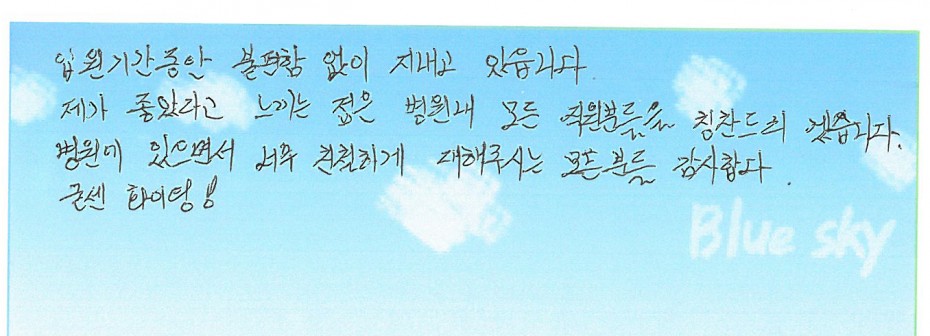 입원기간중안 불편함 없이 지내고 있읍니다.
제가 좋았다고 느끼는 점은 병원내 모든 직원분들을 칭찬드리 겠읍니다.
병원에 있으면서 너무 친절하게 대해주시는 모든분들 감사합다.
굳센 화이팅!
Blue sky